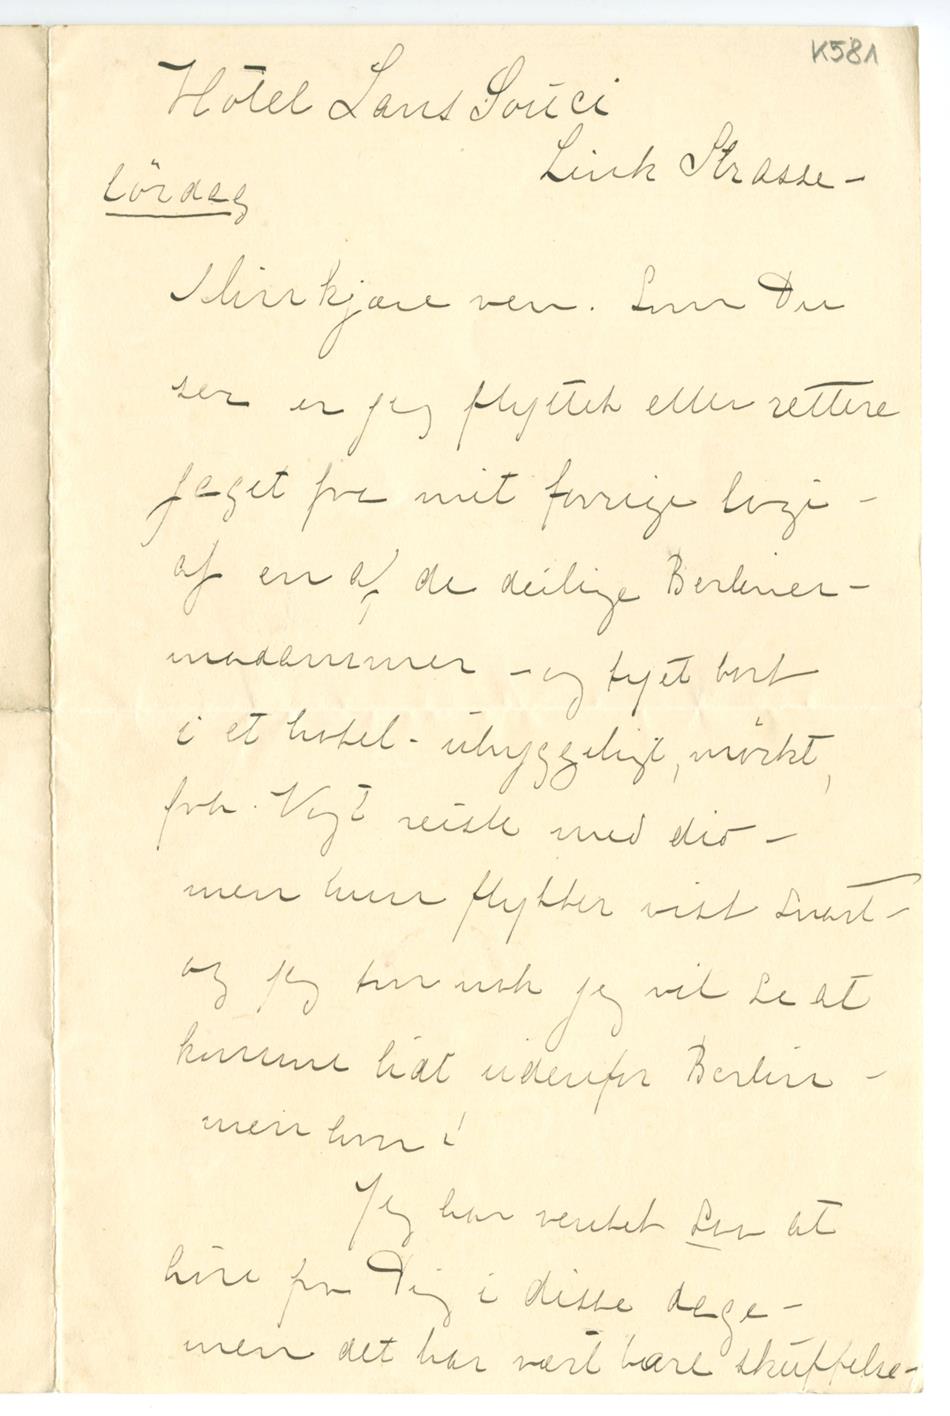 K581
Hôtel Sans Souci
Link Strasse –
Lördag
Min kjære ven. Som Du
ser er jeg flyttet eller rettere
jaget fra mit forrige logi –
af en af de deilige Berliner-
madammer – og tyet bort
i et hotel – uhyggeligt, mörkt,
frk. Vogt reiste med did –
men hun flytter vist snart –
og jeg tror nok jeg vil se at
komme lidt udenfor Berlin –
men hvor!
Jeg har ventet saa at
höre fra Dig i disse dage –
men det har vært bare skuffelse –